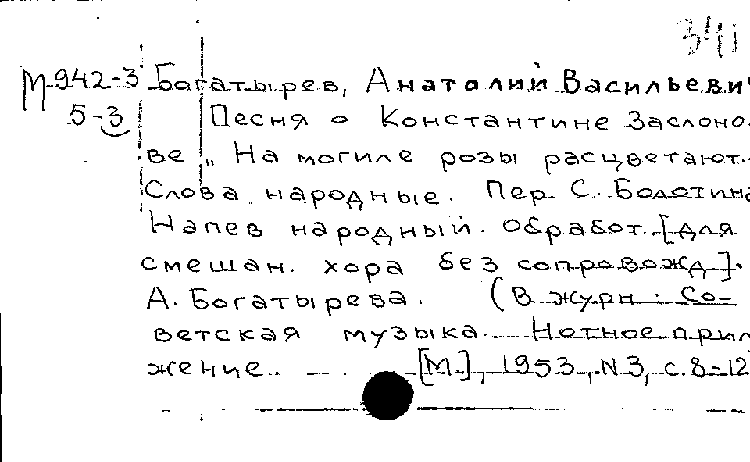 341
М 942-3 Богатырев, Анатолий Васильевич
5-3 Песня о Константине Заслоно-
ве „На могиле розы расцветают..
Слова народные. Пер С. Болотина
Напев народный. Обработ. [для
смешан. хора без сопровожд.].
А. Богатырева. (В журн: Со-
ветская музыка. Нотное прил
жение. [М.], 1953, N3, с. 8-12